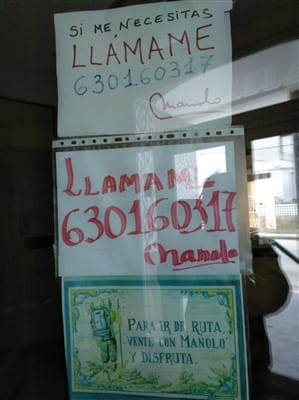 SI ME NECESITAS
LLÁMAME
630160317
Manolo
LLAMAME
630160317
Manolo
PARA IR DE RUTA,
VENTE CON MANOLO
Y DISFRUTA.